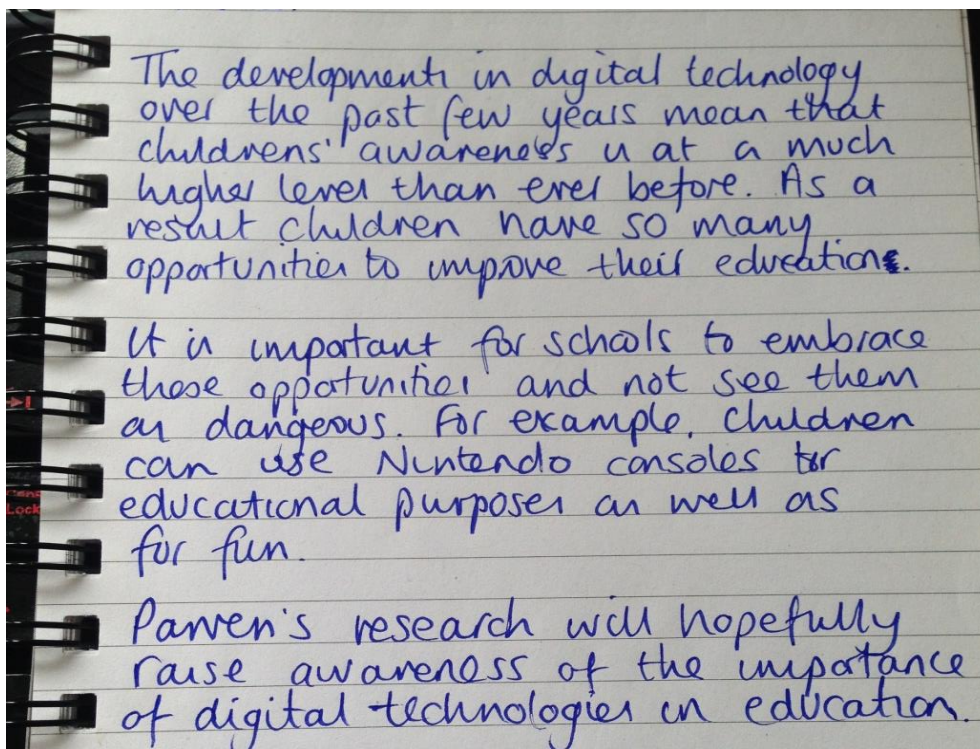 The developments in digital technology
over the past few years mean that
childrens' awareness is at a much
higher level than ever before. As a
result children have so many
opportunities to improve their education.
It is important for schools to embrace
these opportunities and not see them
as dangerous. For example, children
can use Nintendo consoles for
educational purposes as well as
for fun.
Parven's research will hopefully
raise awareness of the importance
of digital technologies in education.
Lock